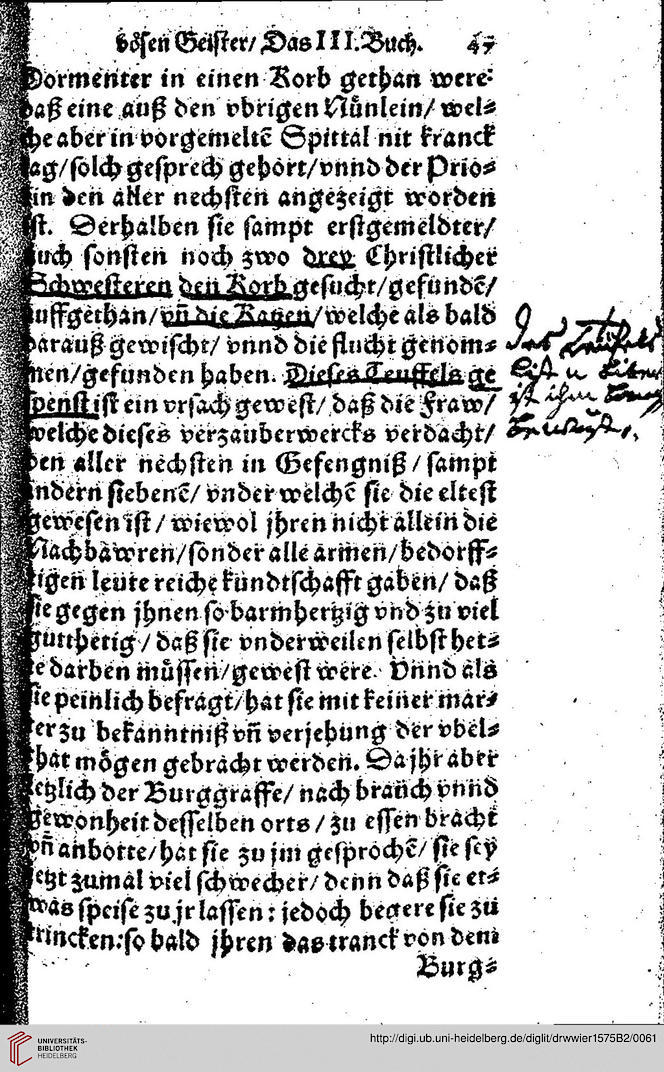 bösen Geister/ Das III. Buch. 47
Dormenter in einen Korb gethan were:
daß eine auß den vbrigen Nünlein/ wel⸗
che aber in vorgemeltē Spittal nit kranck
lag/ solch gesprech gehört/ vnnd der Prio⸗
rin den aller nechsten angezeigt worden
ist. Derhalben sie sampt erstgemeldter/
auch sonsten noch zwo drey Christlicher
Schwesteren den Korb gesucht/ gefundē/
auffgethan/ vñ die Katzen/ welche als bald
darauß gewischt/ vnnd die flucht genom⸗
men/ gefunden haben. Dieses Teuffels ge
spenst ist ein vrsach gewest/ daß die Fraw/
welche dieses verzauberwercks verdacht/
den aller nechsten in Gefengniß/ sampt
andern siebenē/ vnder welchē sie die eltest
gewesen ist/ wiewol jhren nicht allein die
Nachbäwren/ sonder alle armen/ bedörff⸗
tigen leute reiche kundtschafft gaben/ daß
sie gegen jhnen so barmhertzig vnd zu viel
gutthetig/ daß sie vnderweilen selbst het⸗
te darben müssen/ gewest were. Vnnd als
sie peinlich befragt/ hat sie mit keiner mar⸗
ter zu bekanntniß vñ verjehung der vbel⸗
that mögen gebracht werden. Da jhr aber
letzlich der Burggraffe/ nach brauch vnnd
gewonheit desselben orts/ zu essen bracht
vñ anbotte/ hat sie zu jm gesprochē/ sie sey
jetzt zumal viel schwecher/ denn daß sie et⸗
was speise zu jr lassen: jedoch begere sie zu
trincken: so bald jhren das tranck von dem
Burg⸗
ist ihm
UNIVERSITÄTS-
BIBLIOTHEK
HEIDELBERG
http://digi.ub.uni-heidelberg.de/diglit/drwwier1575B2/0061